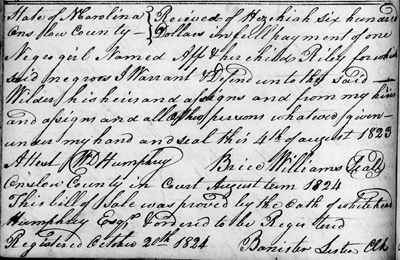 State of N Carolina { Recieved of Hezekiah six hundred
Onslow County — { Dollars in full payment of one
Negro girl Named Aff & her child Riley for which
said negroes I Warrant & Defend unto the said —
Wilder, his heirs and assigns and from my heirs
and assigns and all other persons whatever given
under my hand and seal this 4th of august 1823
Attest W D Humphrey Brice Williams (Seal)
Onslow County in Court August term 1824
This bill of Sale was proved by the Oath of
Humphrey Esqr & ordered to be Registered
Registered October 20th 1824 Banister Lester Clk